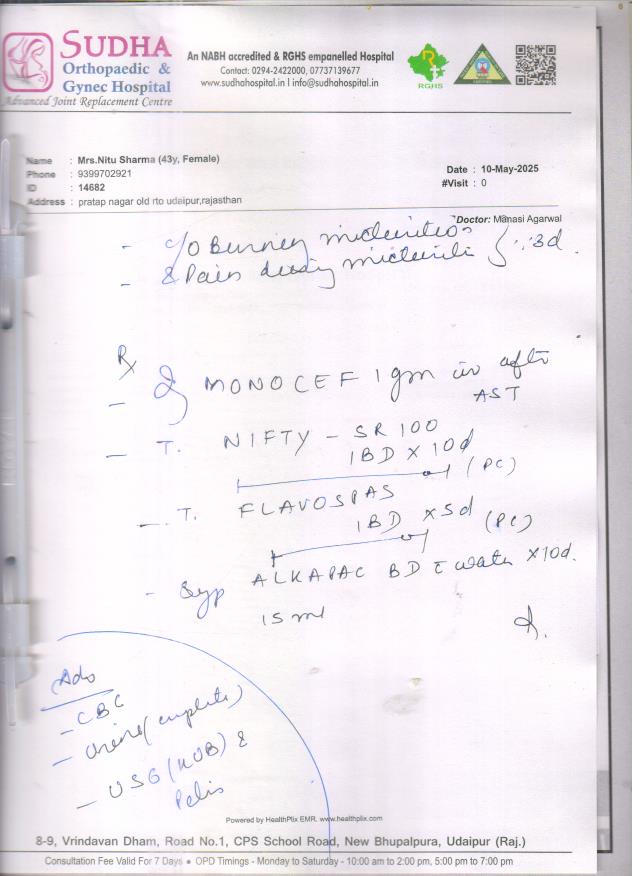 SUDHA
Orthopaedic & Gynec Hospital
Advanced Joint Replacement Centre
An NABH accredited & RGHS empanelled Hospital
Contact: 0294-2422000, 07737139677
www.sudhahospital.in I info@sudhahospital.in
RGHS
Name : Mrs.Nitu Sharma (43y, Female)
Phone : 9399702921
ID : 14682
Address : pratap nagar old rto udaipur,rajasthan
Date : 10-May-2025
#Visit : 0
Doctor: Manasi Agarwal
- c/o Burning micturition
- & Pain during micturition } 3d.
Rx
- MONOCEF 1 gm iv after
AST
- T. NIFTY - SR 100
1BD X 10d
(PC)
- T. FLAVOSPAS
1BD X 5d (PC)
- Syp ALKAPAC BD c̄ water X10d.
15 ml
Adv
- CBC
- Urine (complete)
- USG (KUB) &
Pelvis
Powered by HealthPlix EMR. www.healthplix.com
8-9, Vrindavan Dham, Road No.1, CPS School Road, New Bhupalpura, Udaipur (Raj.)
Consultation Fee Valid For 7 Days ● OPD Timings - Monday to Saturday - 10:00 am to 2:00 pm, 5:00 pm to 7:00 pm